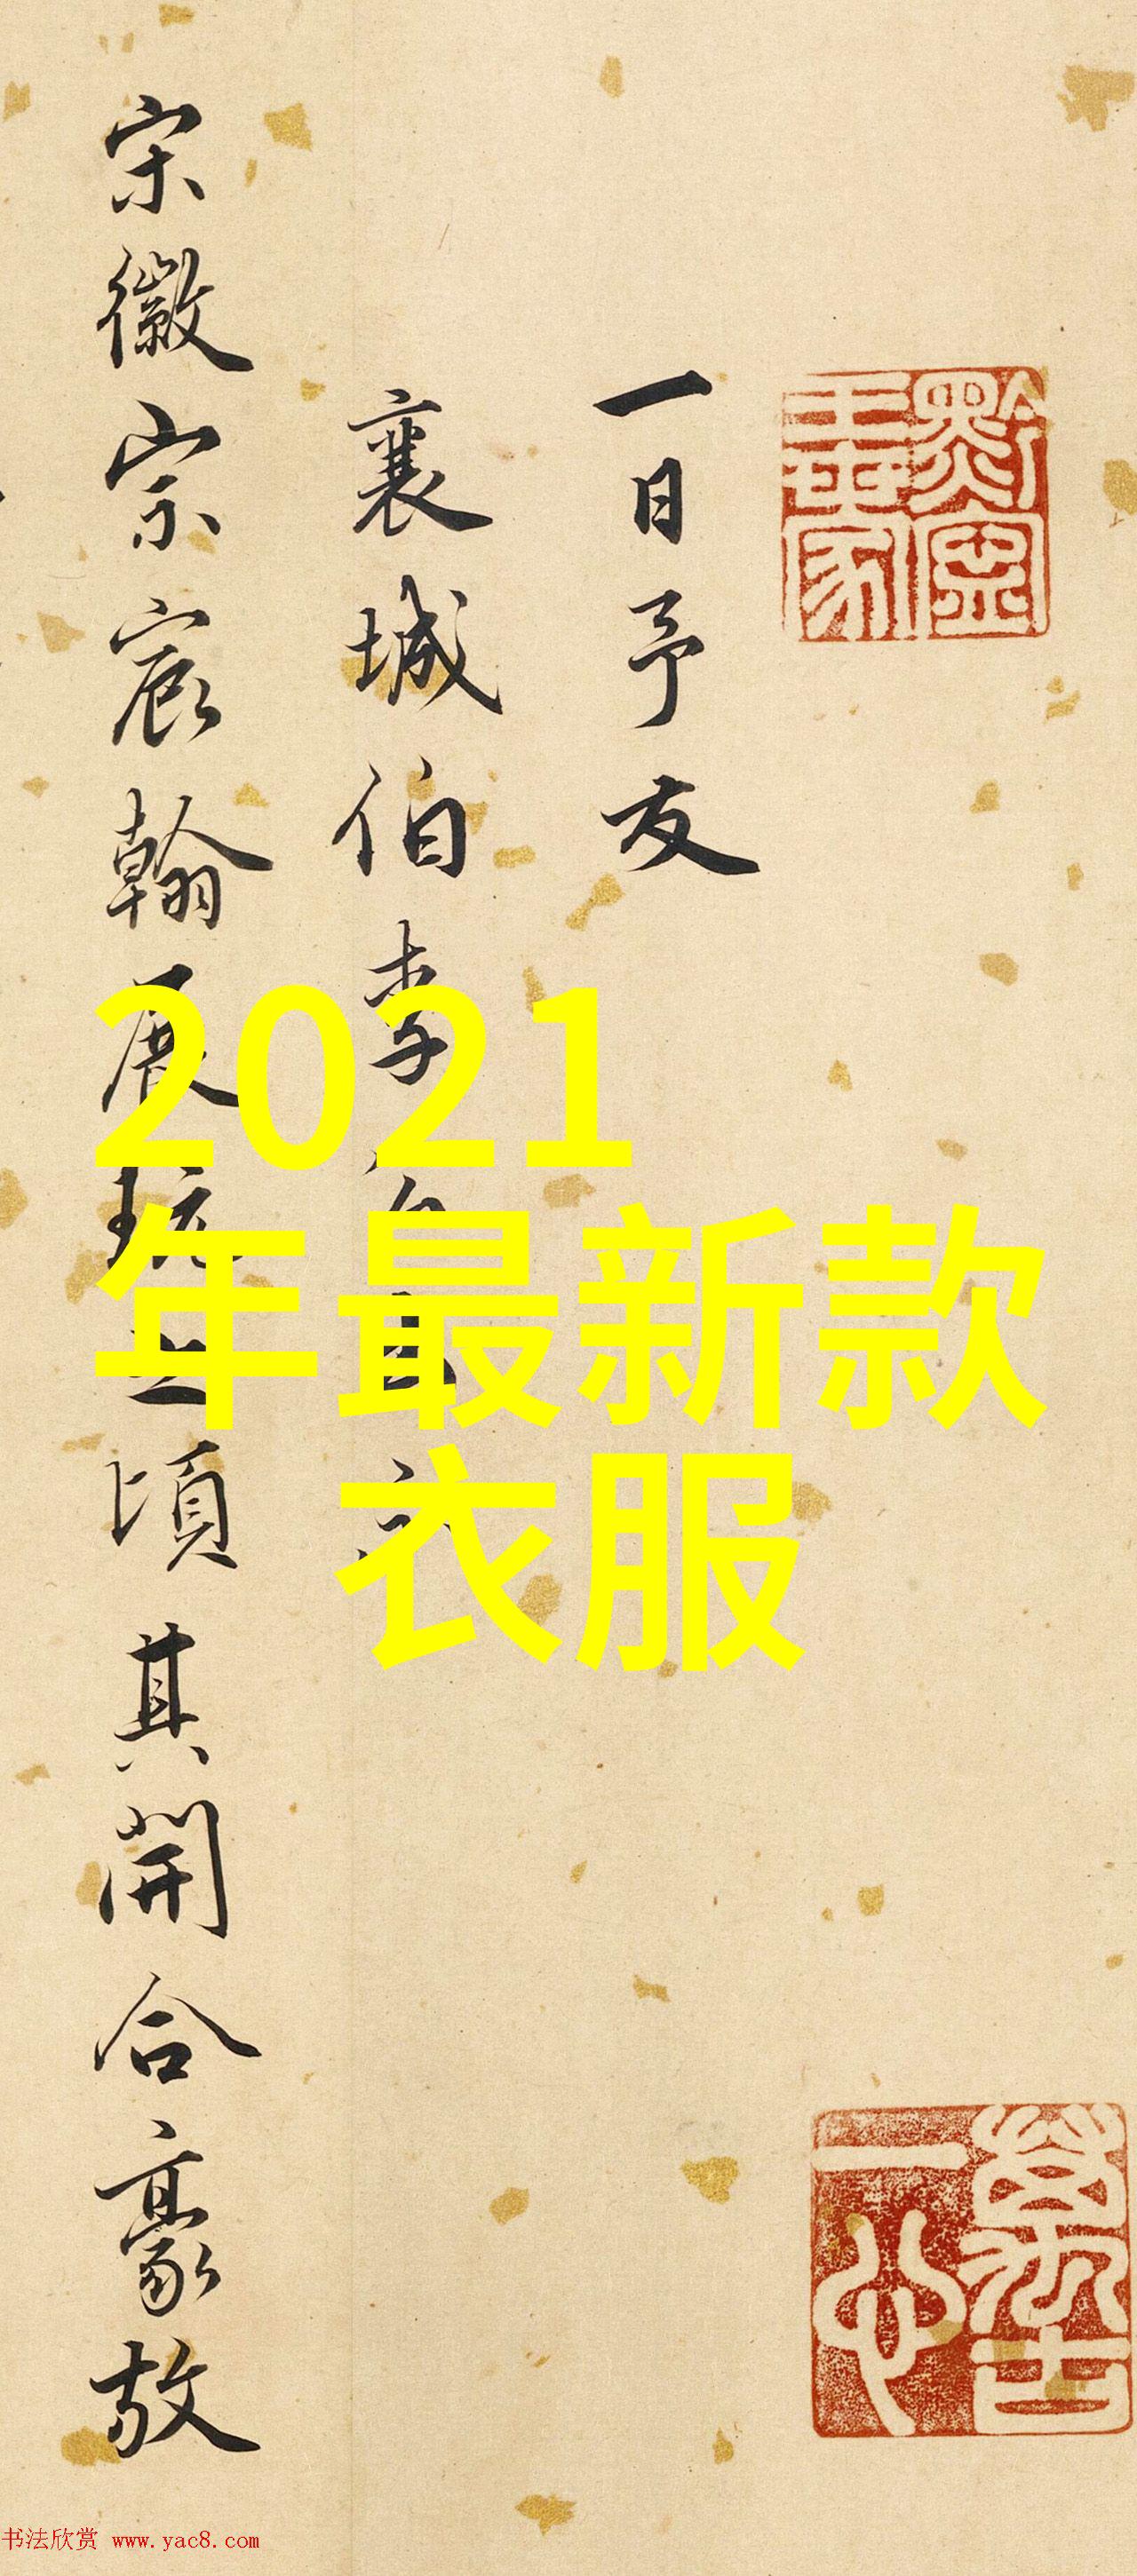 一日予友
襄城伯李
宋徽宗宸翰展玩之頃其開合豪放
2021
年最新款
衣服
书法欣赏 www.yac8.com